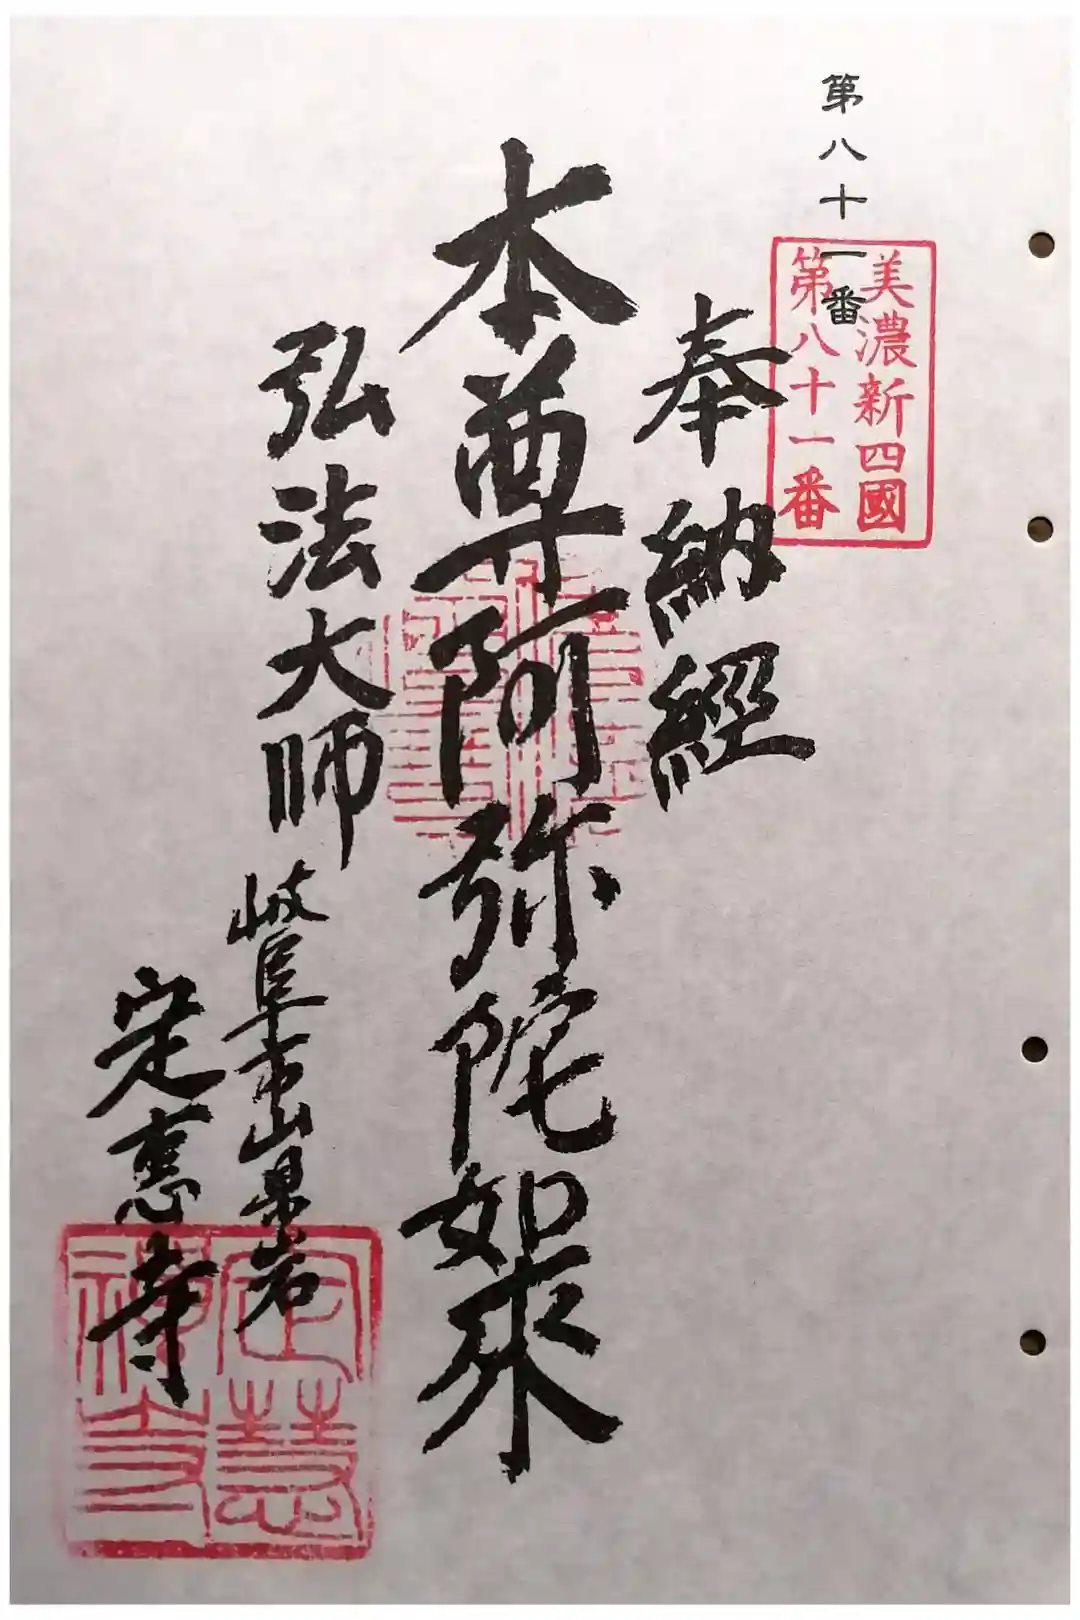 第八十一番
美濃新四國
第八十一番
奉納經
本尊阿弥陀如來
弘法大師
岐阜市山県岩
定恵寺
定慧
禅寺